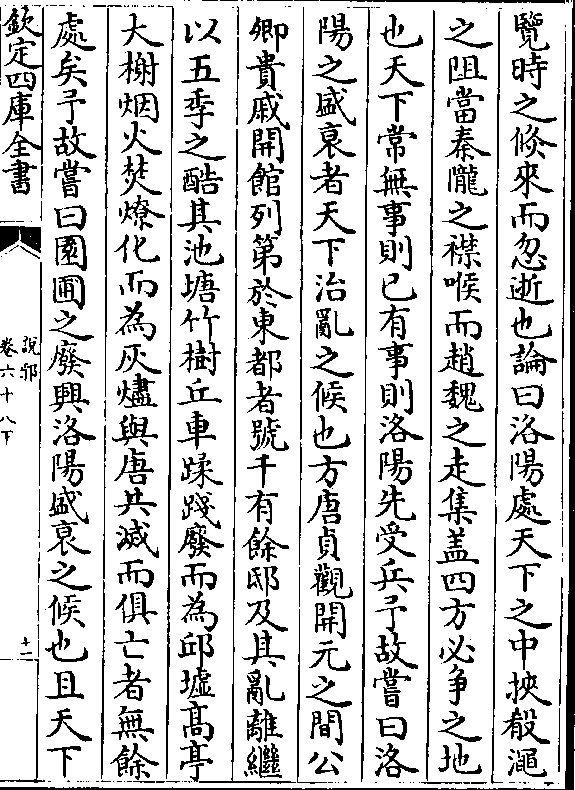 覽時之倐來而忽逝也論曰洛陽處天下之中挾殽澠
之阻當秦隴之襟喉而趙魏之走集盖四方必争之地
也天下常無事則已有事則洛陽先受兵予故嘗曰洛
陽之盛衰者天下治亂之候也方唐貞觀開元之間公
卿貴戚開館列第於東都者號千有餘邸及其亂離繼
以五季之酷其池塘竹樹丘車蹂踐廢而為邱墟髙亭
大榭烟火焚燎化而為灰燼與唐共滅而俱亡者無餘
處矣予故嘗曰園囿之廢興洛陽盛衰之候也且天下
欽定四庫全書
說郛
卷六十八下
十一